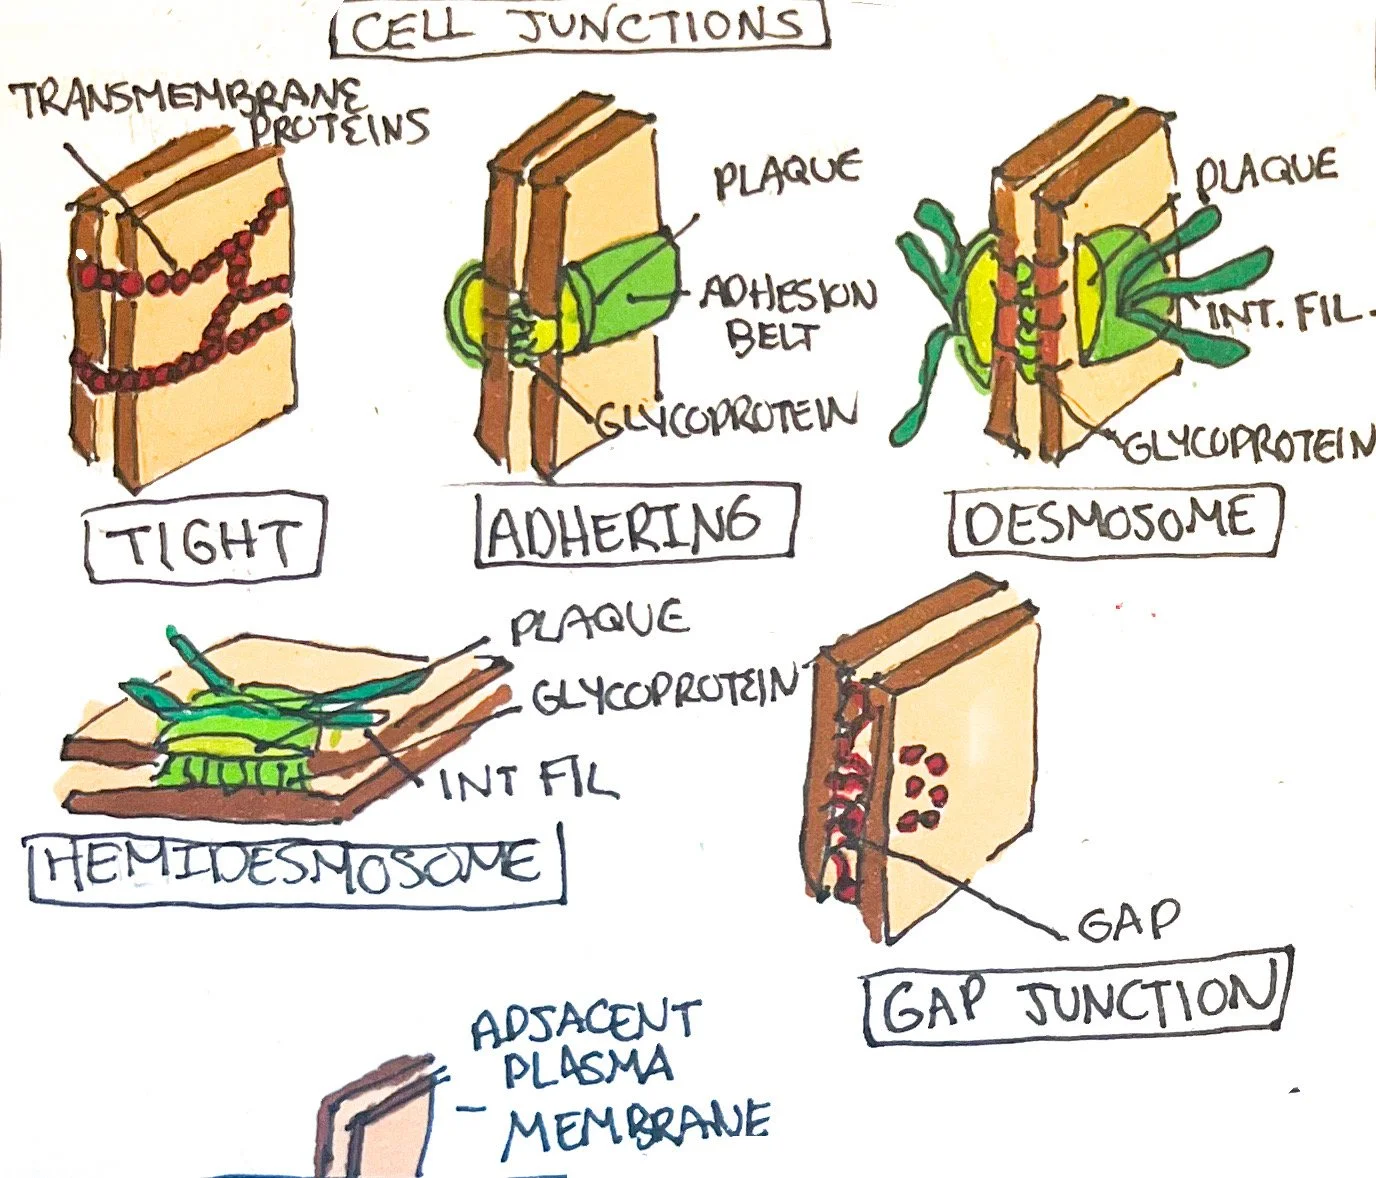 CELL JUNCTIONS
TRANSMEMBRANE
PROTEINS
TIGHT
PLAQUE
ADHESION
BELT
GLYCOPROTEIN
ADHERING
PLAQUE
INT. FIL.
GLYCOPROTEIN
DESMOSOME
PLAQUE
GLYCOPROTEIN
INT FIL
HEMIDESMOSOME
GAP
GAP JUNCTION
ADJACENT
PLASMA
MEMBRANE